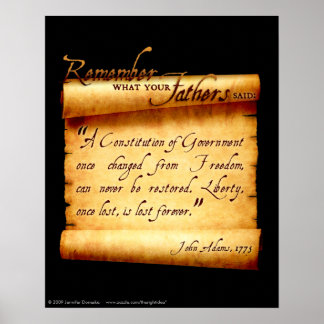 Remember
WHAT YOUR Fathers SAID:
"A Constitution of Government
once changed from Freedom,
can never be restored. Liberty,
once lost, is lost forever."
John Adams, 1775
© 2009 Jennifer Domeka www.zazzle.com/therightidea*